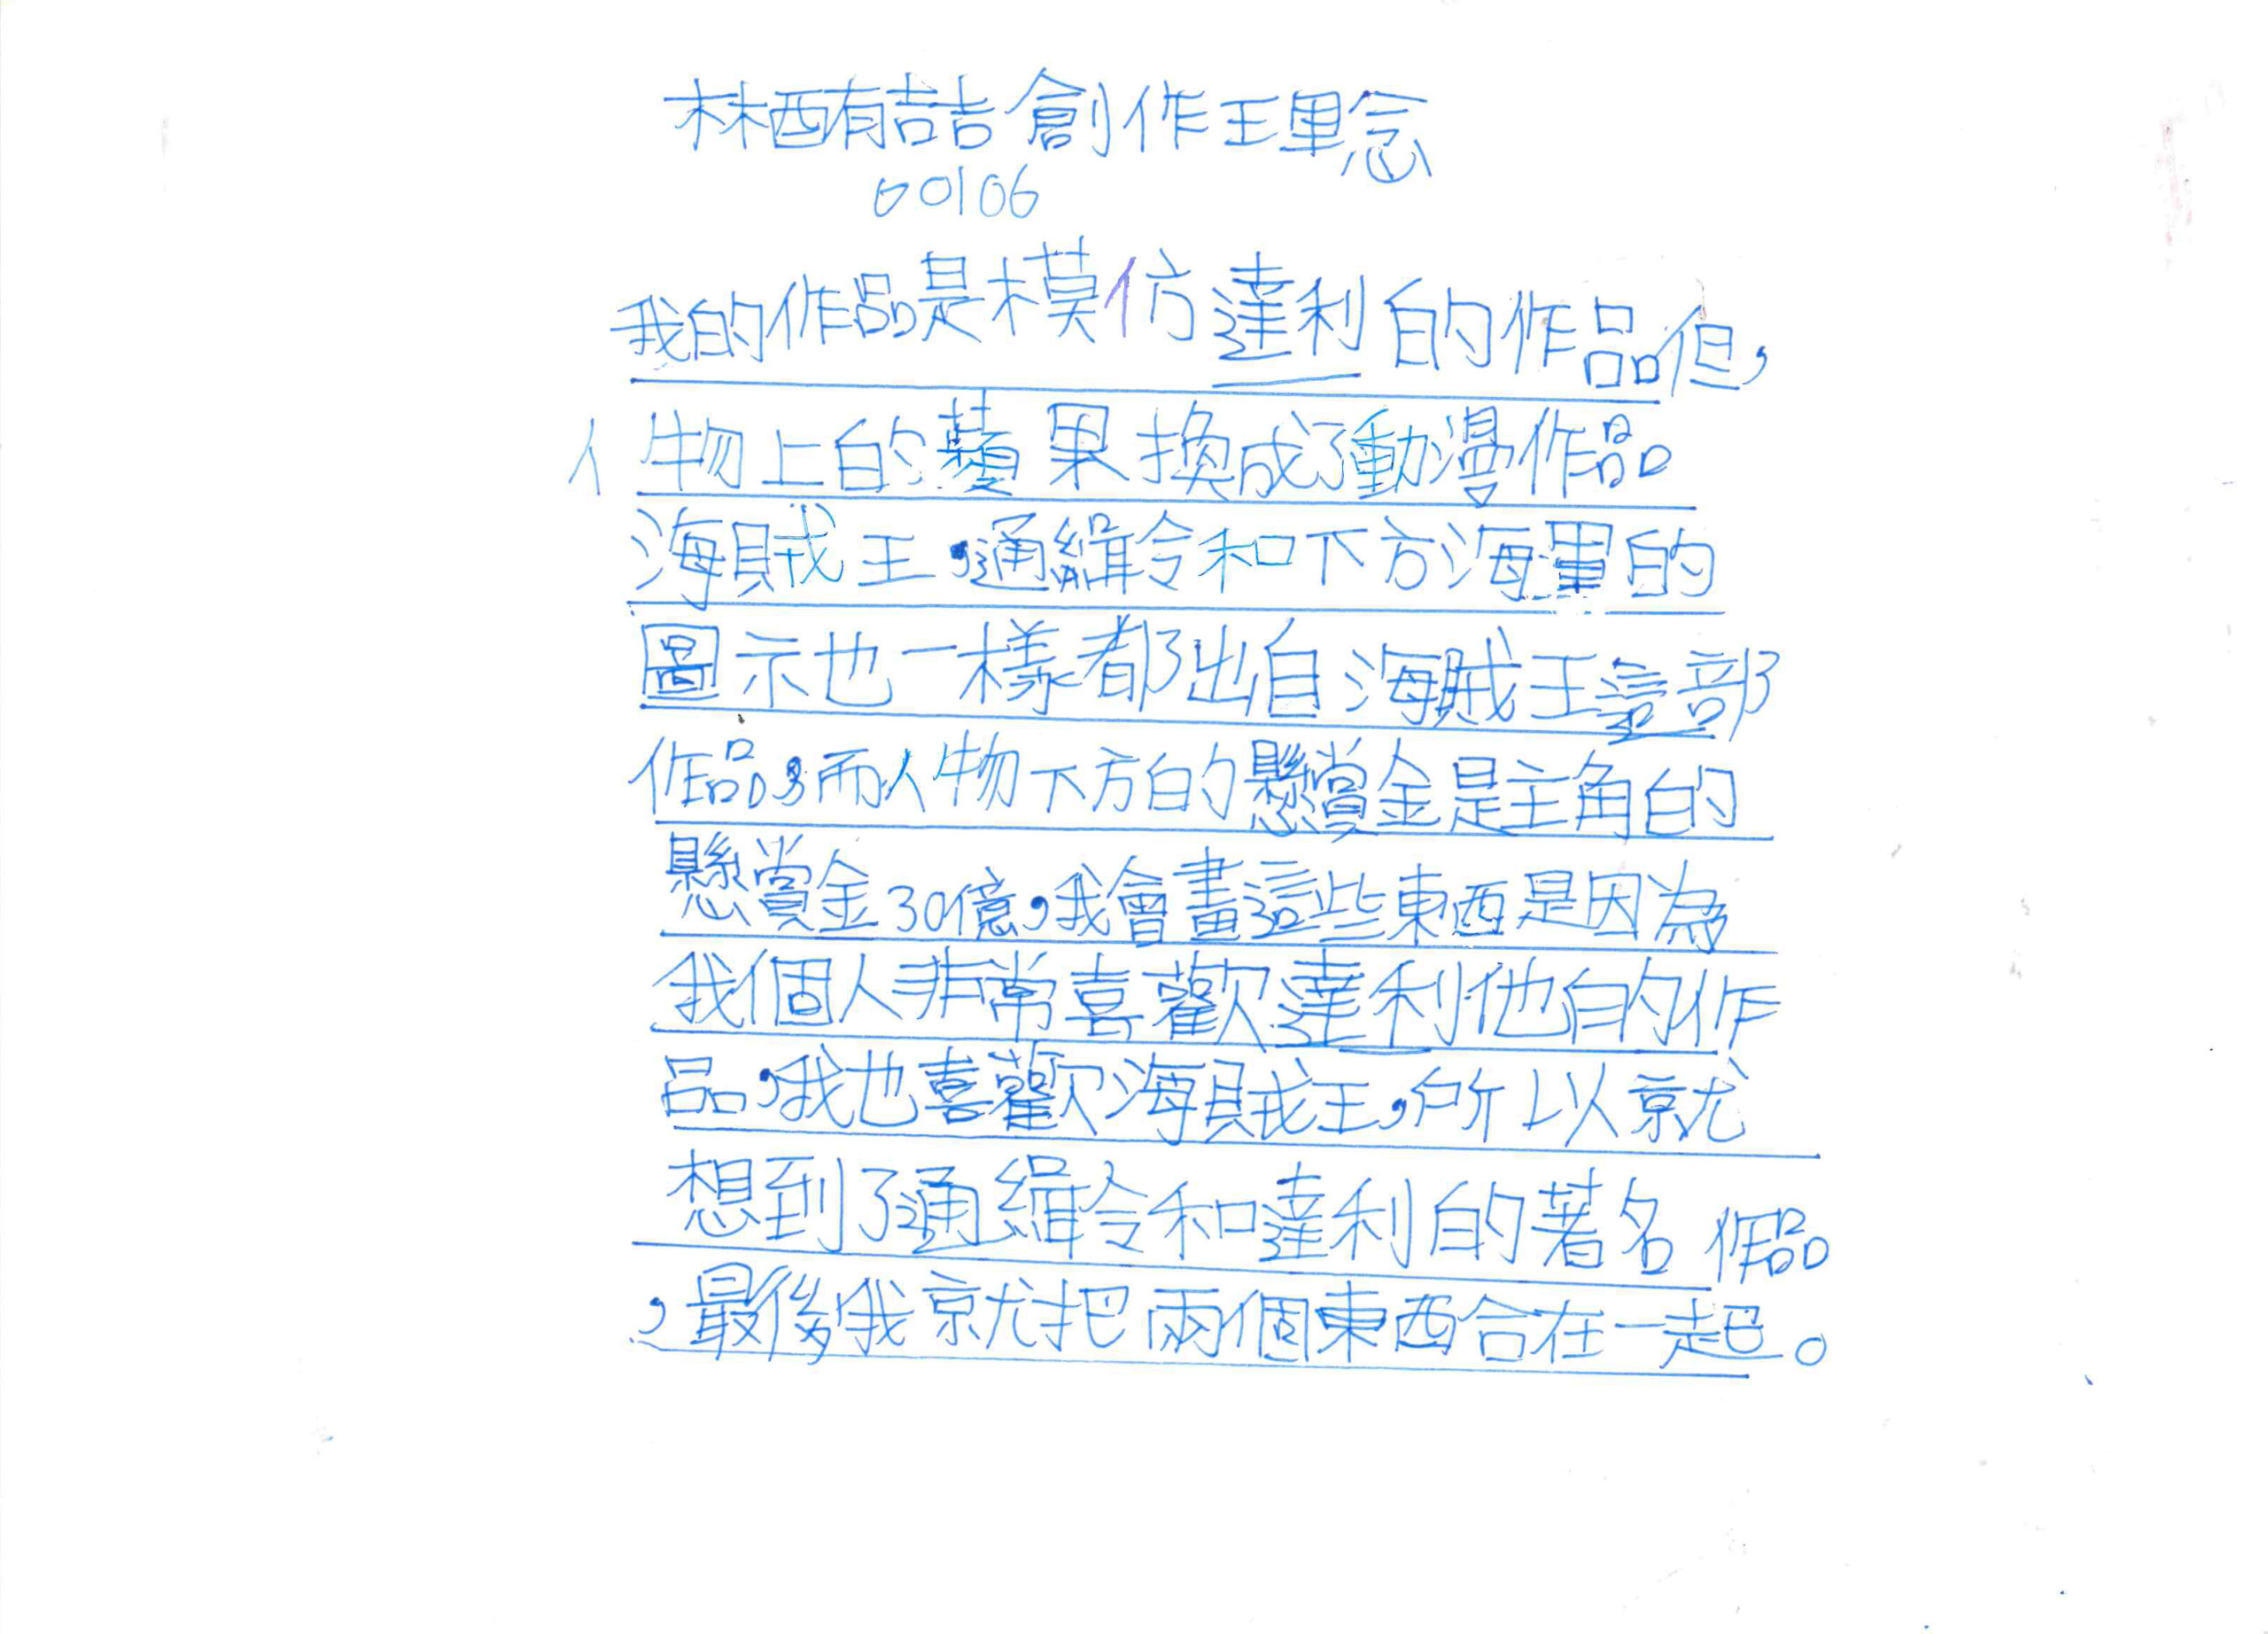 林酭喆創作理念
60106
我的作品是模仿達利的作品但,
人物上的蘋果換成了動漫作品
海賊王,通緝令和下方海軍的
圖示也一樣都出自海賊王這部
作品,而人物下方的懸賞金是主角的
懸賞金30億,我會畫這些東西是因為
我個人非常喜歡達利他的作
品,我也喜歡海賊王,所以就
想到了通緝令和達利的著名作品
,最後我就把兩個東西合在一起。